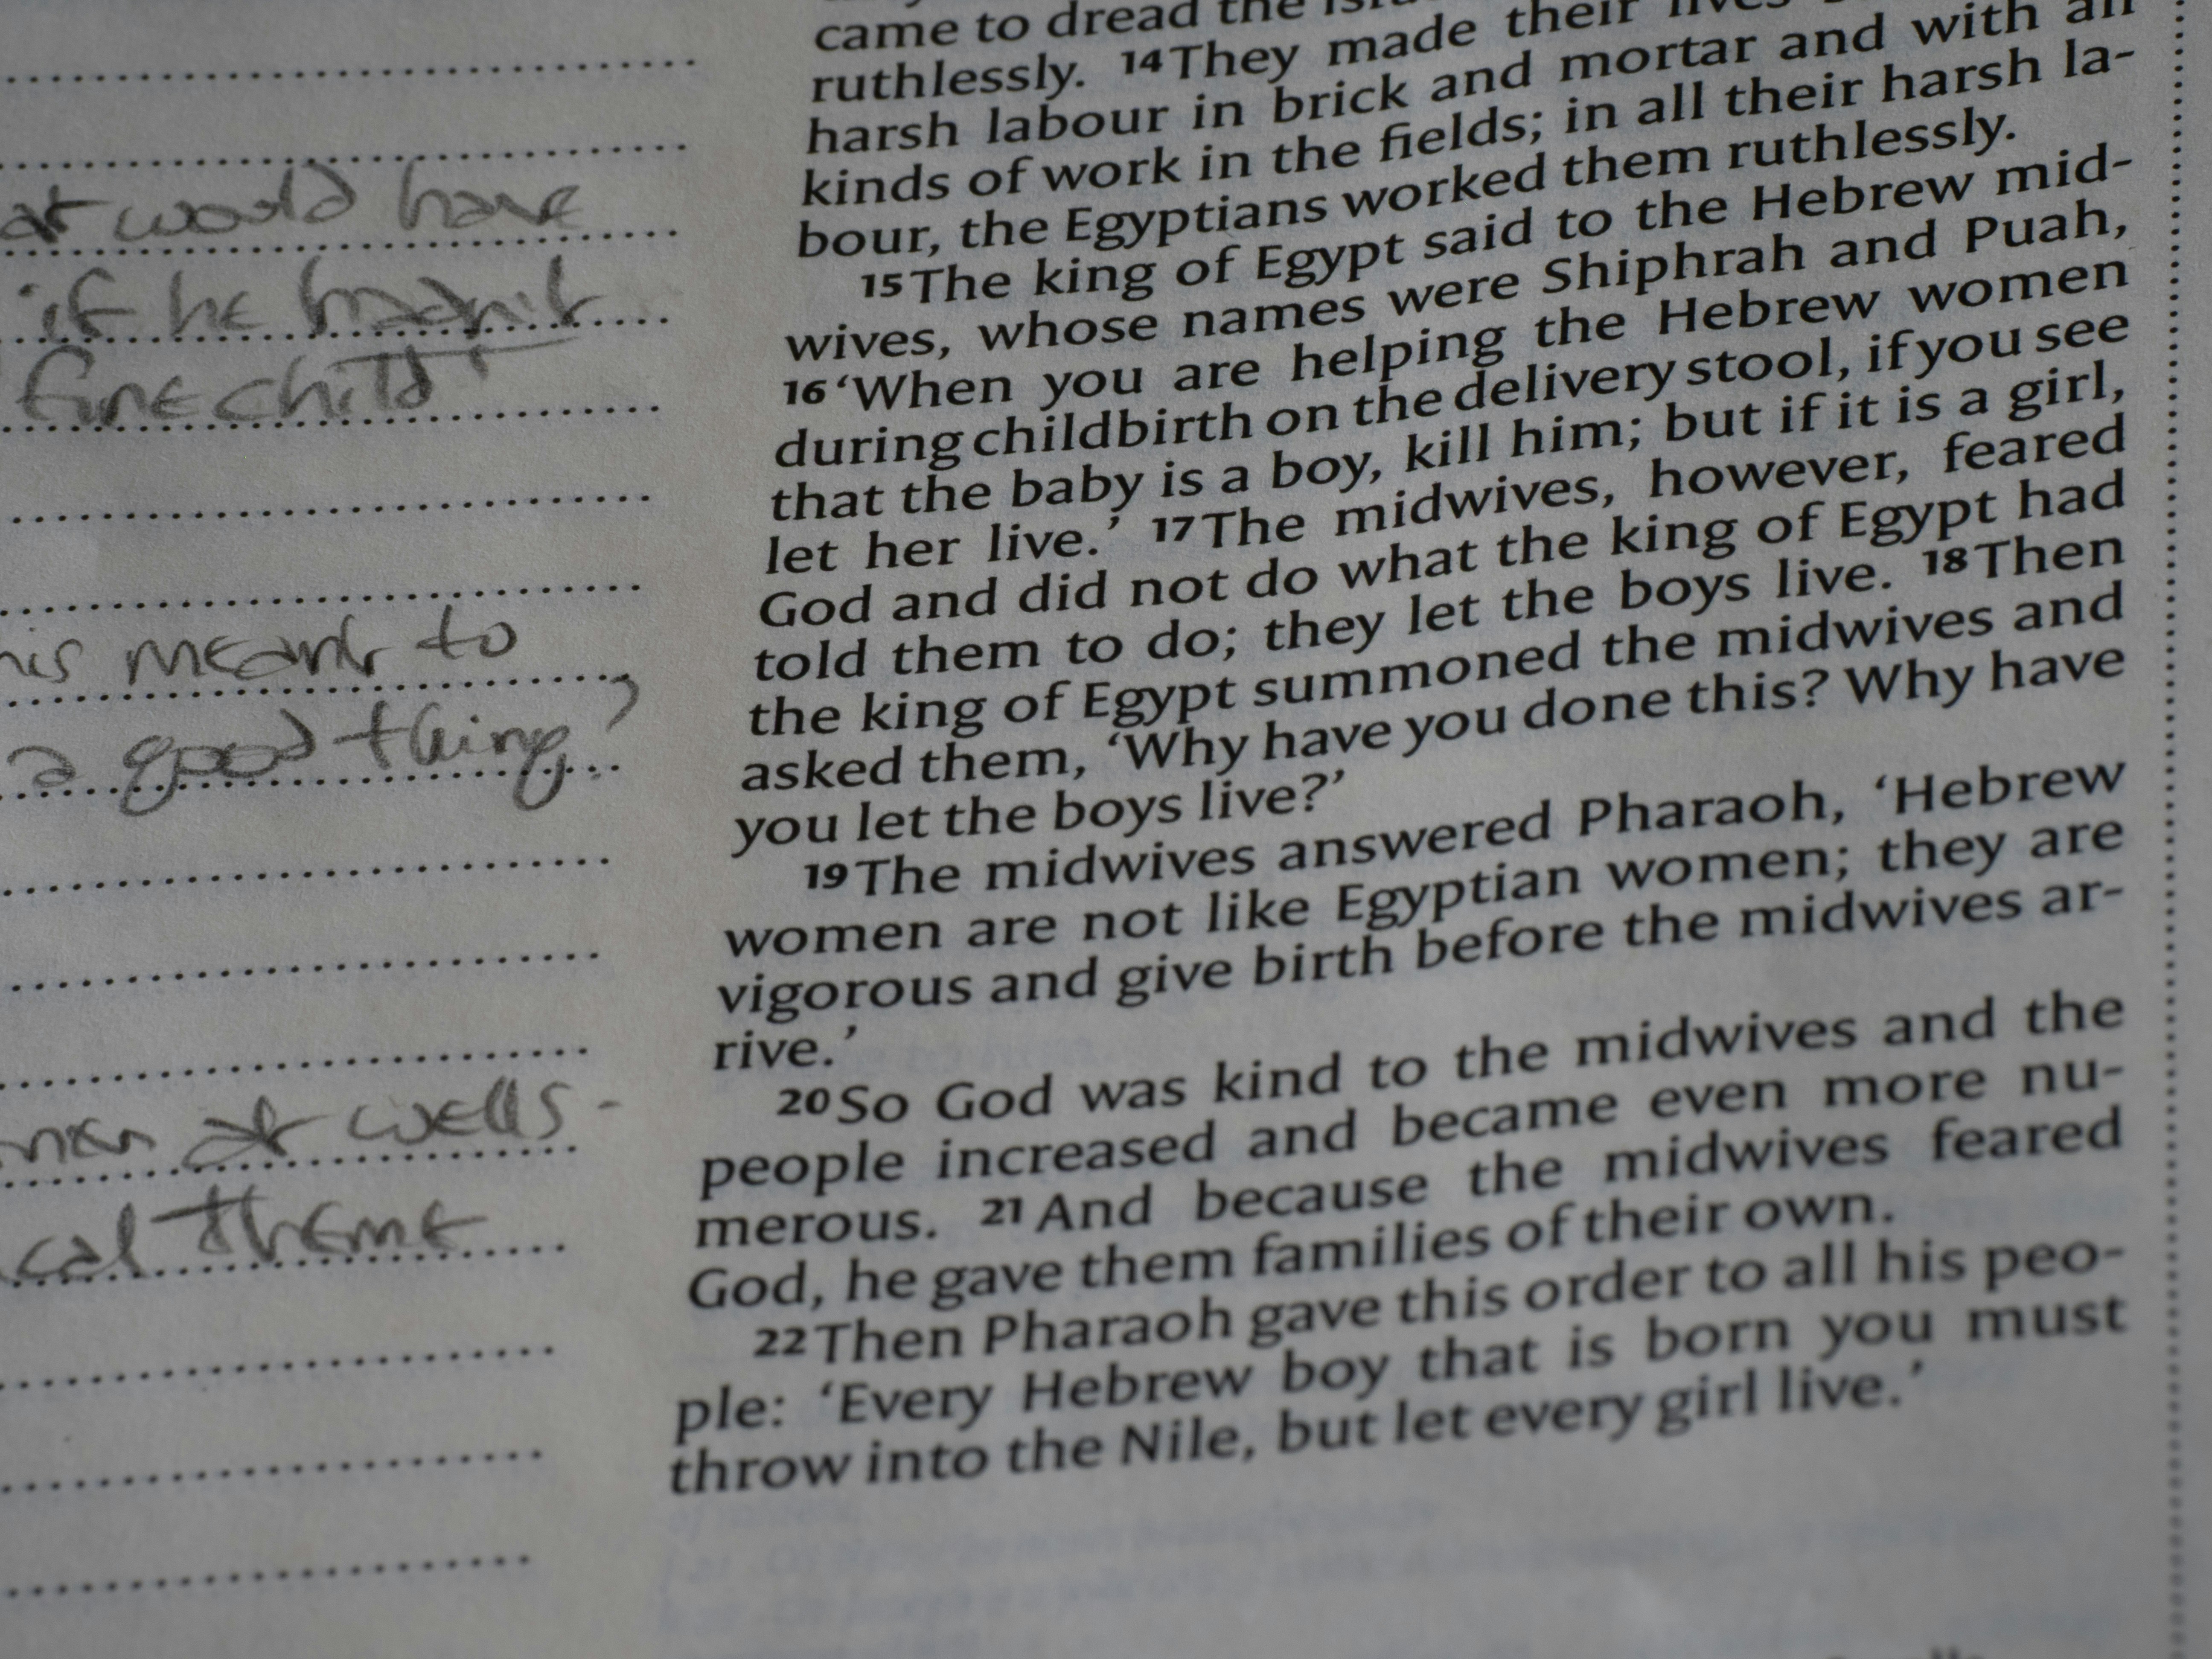 at would have
if he hadn't
fine child'
his meant to
a good thing?
men at wells -
cal theme
came to dread the
ruthlessly. 14They made their lives
harsh labour in brick and mortar and with all
kinds of work in the fields; in all their harsh la-
bour, the Egyptians worked them ruthlessly.
15The king of Egypt said to the Hebrew mid-
wives, whose names were Shiphrah and Puah,
16‘When you are helping the Hebrew women
during childbirth on the delivery stool, if you see
that the baby is a boy, kill him; but if it is a girl,
let her live.’ 17The midwives, however, feared
God and did not do what the king of Egypt had
told them to do; they let the boys live. 18Then
the king of Egypt summoned the midwives and
asked them, ‘Why have you done this? Why have
you let the boys live?’
19The midwives answered Pharaoh, ‘Hebrew
women are not like Egyptian women; they are
vigorous and give birth before the midwives ar-
rive.’
20So God was kind to the midwives and the
people increased and became even more nu-
merous. 21And because the midwives feared
God, he gave them families of their own.
22Then Pharaoh gave this order to all his peo-
ple: ‘Every Hebrew boy that is born you must
throw into the Nile, but let every girl live.’